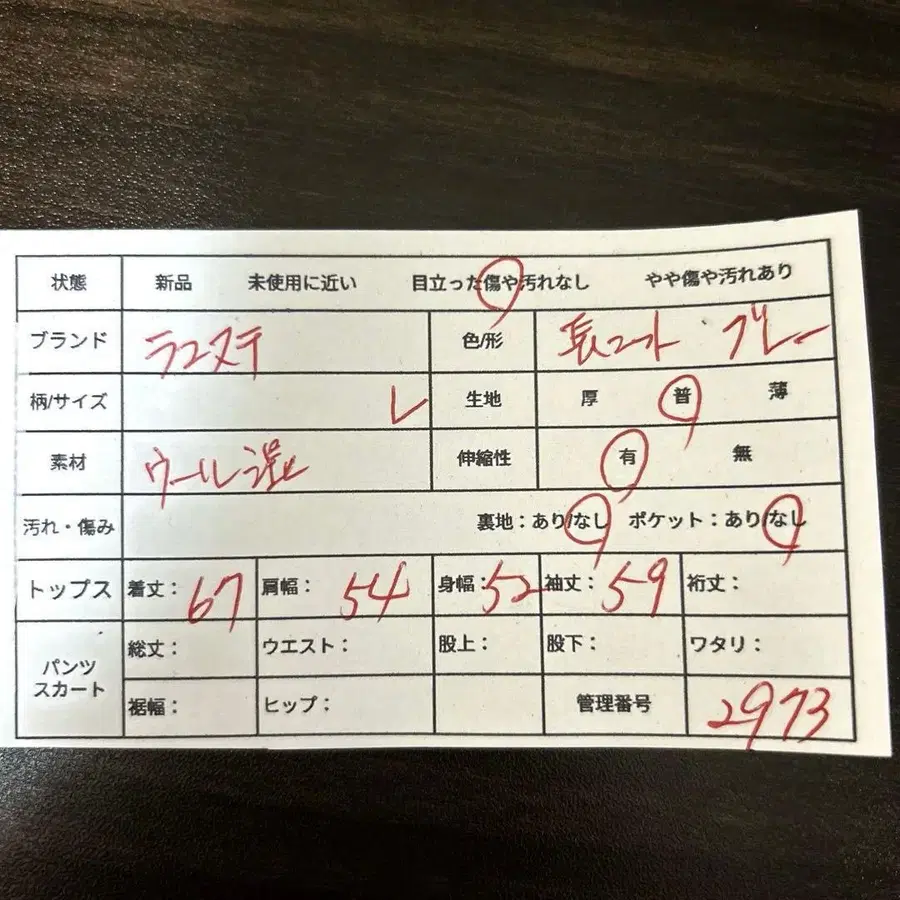 状態 新品 未使用に近い 目立った傷や汚れなし やや傷や汚れあり
ブランド ラコステ 色/形 長コート グレー
柄/サイズ L 生地 厚 普 薄
素材 ウール混 伸縮性 有 無
汚れ・傷み 裏地:あり/なし ポケット:あり/なし
トップス 着丈: 67 肩幅: 54 身幅: 52 袖丈: 59 裄丈:
パンツ スカート 総丈: ウエスト: 股上: 股下: ワタリ:
裾幅: ヒップ: 管理番号 2973